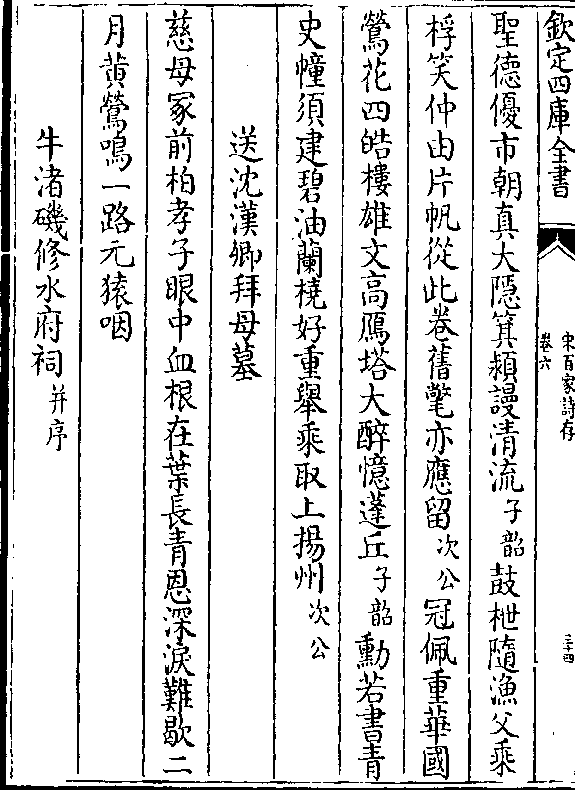 欽定四庫全書
宋百家詩存
卷六
二十四
聖德優市朝真大隱箕潁謾清流子韶鼓枻隨漁父乘
桴笑仲由片帆從此卷舊氊亦應留次公冠佩重華國
鶯花四皓樓雄文高鴈塔大醉憶蓬丘子韶勳若書青
史幢須建碧油蘭橈好重舉乘取上揚州次公
送沈漢卿拜母墓
慈母冢前柏孝子眼中血根在葉長青恩深淚難歇二
月黄鶯鳴一路元猿咽
牛渚磯修水府祠并序